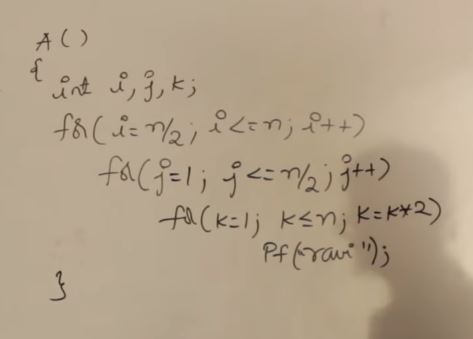 A()
{
int i, j, k;
for( i=n/2; i<=n; i++)
for(j=1; j<=n/2; j++)
for(k=1; k≤n; k=k*2)
Pf("ravi");
}